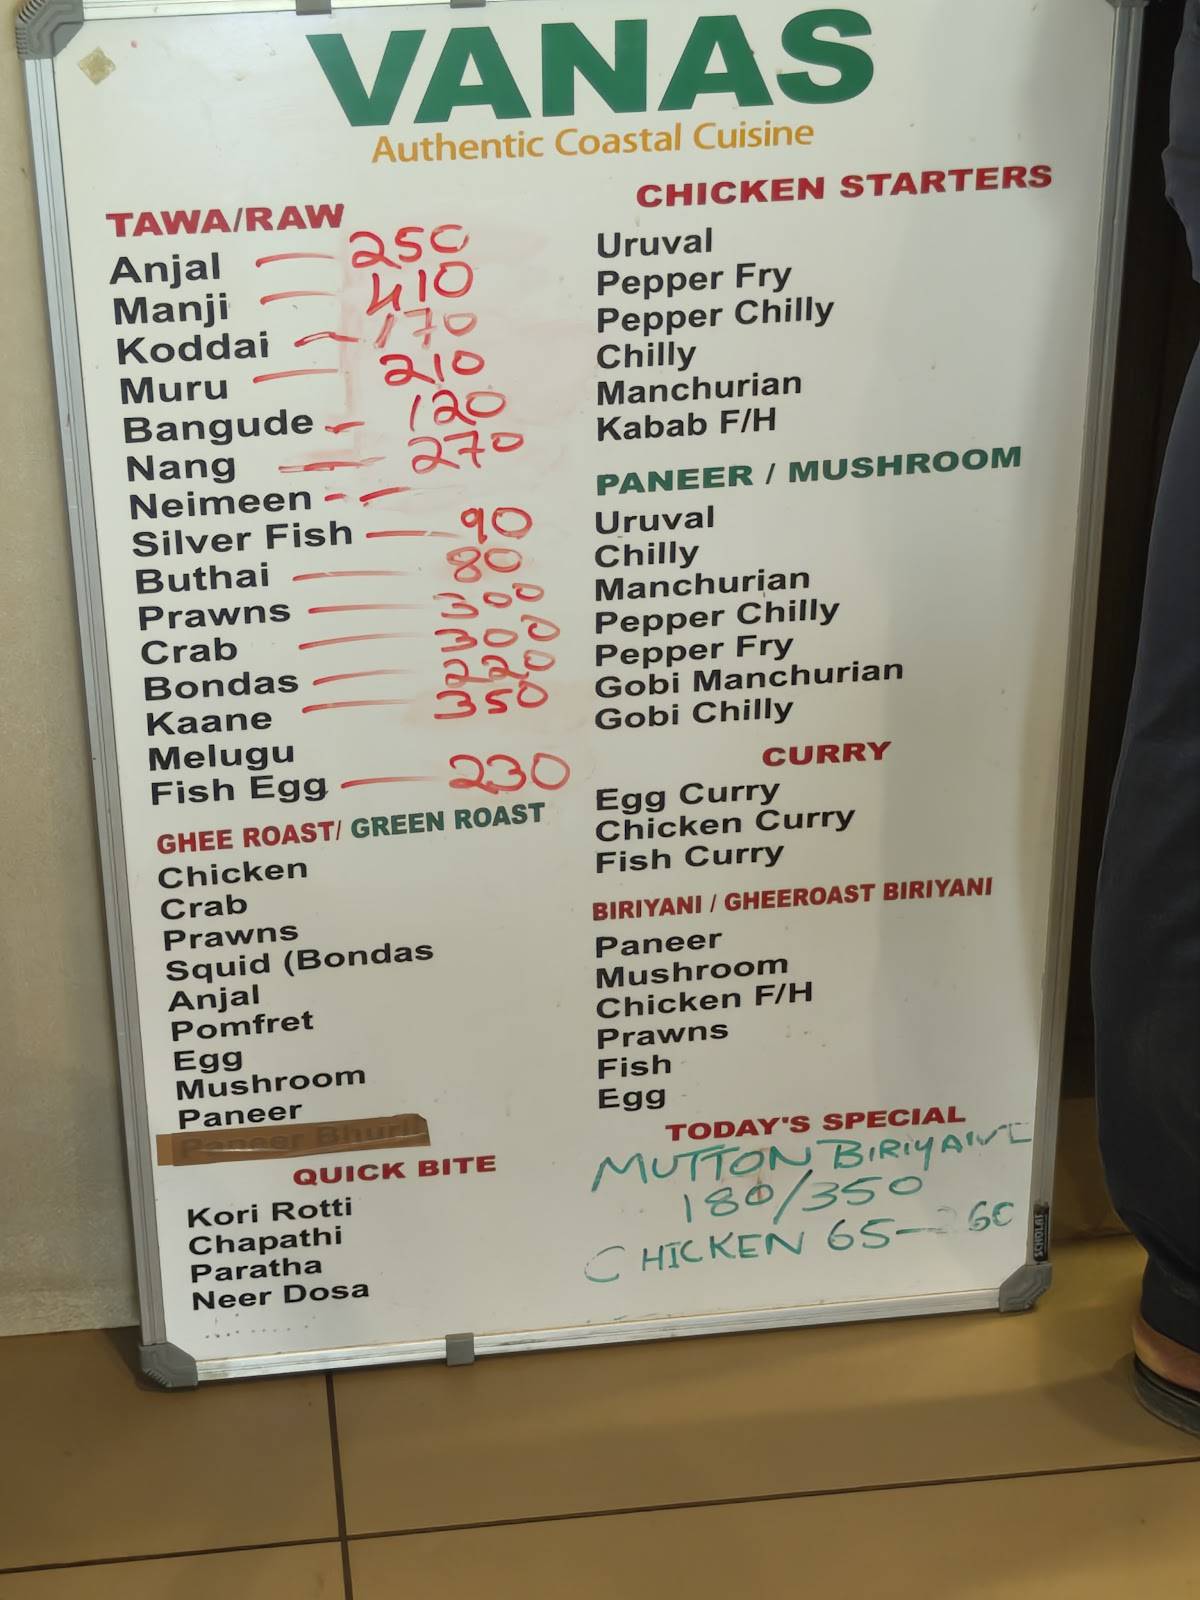 VANAS
Authentic Coastal Cuisine
TAWA/RAW
Anjal — 250
Manji — 410
Koddai — 170
Muru — 210
Bangude - 120
Nang — 270
Neimeen - -
Silver Fish — 90
Buthai — 80
Prawns — 300
Crab — 300
Bondas — 220
Kaane — 350
Melugu
Fish Egg — 230
GHEE ROAST/ GREEN ROAST
Chicken
Crab
Prawns
Squid (Bondas
Anjal
Pomfret
Egg
Mushroom
Paneer
Paneer Bhurji
QUICK BITE
Kori Rotti
Chapathi
Paratha
Neer Dosa
CHICKEN STARTERS
Uruval
Pepper Fry
Pepper Chilly
Chilly
Manchurian
Kabab F/H
PANEER / MUSHROOM
Uruval
Chilly
Manchurian
Pepper Chilly
Pepper Fry
Gobi Manchurian
Gobi Chilly
CURRY
Egg Curry
Chicken Curry
Fish Curry
BIRIYANI / GHEEROAST BIRIYANI
Paneer
Mushroom
Chicken F/H
Prawns
Fish
Egg
TODAY'S SPECIAL
MUTTON BIRIYANI
180/350
CHICKEN 65 — 260
SCHOLAR